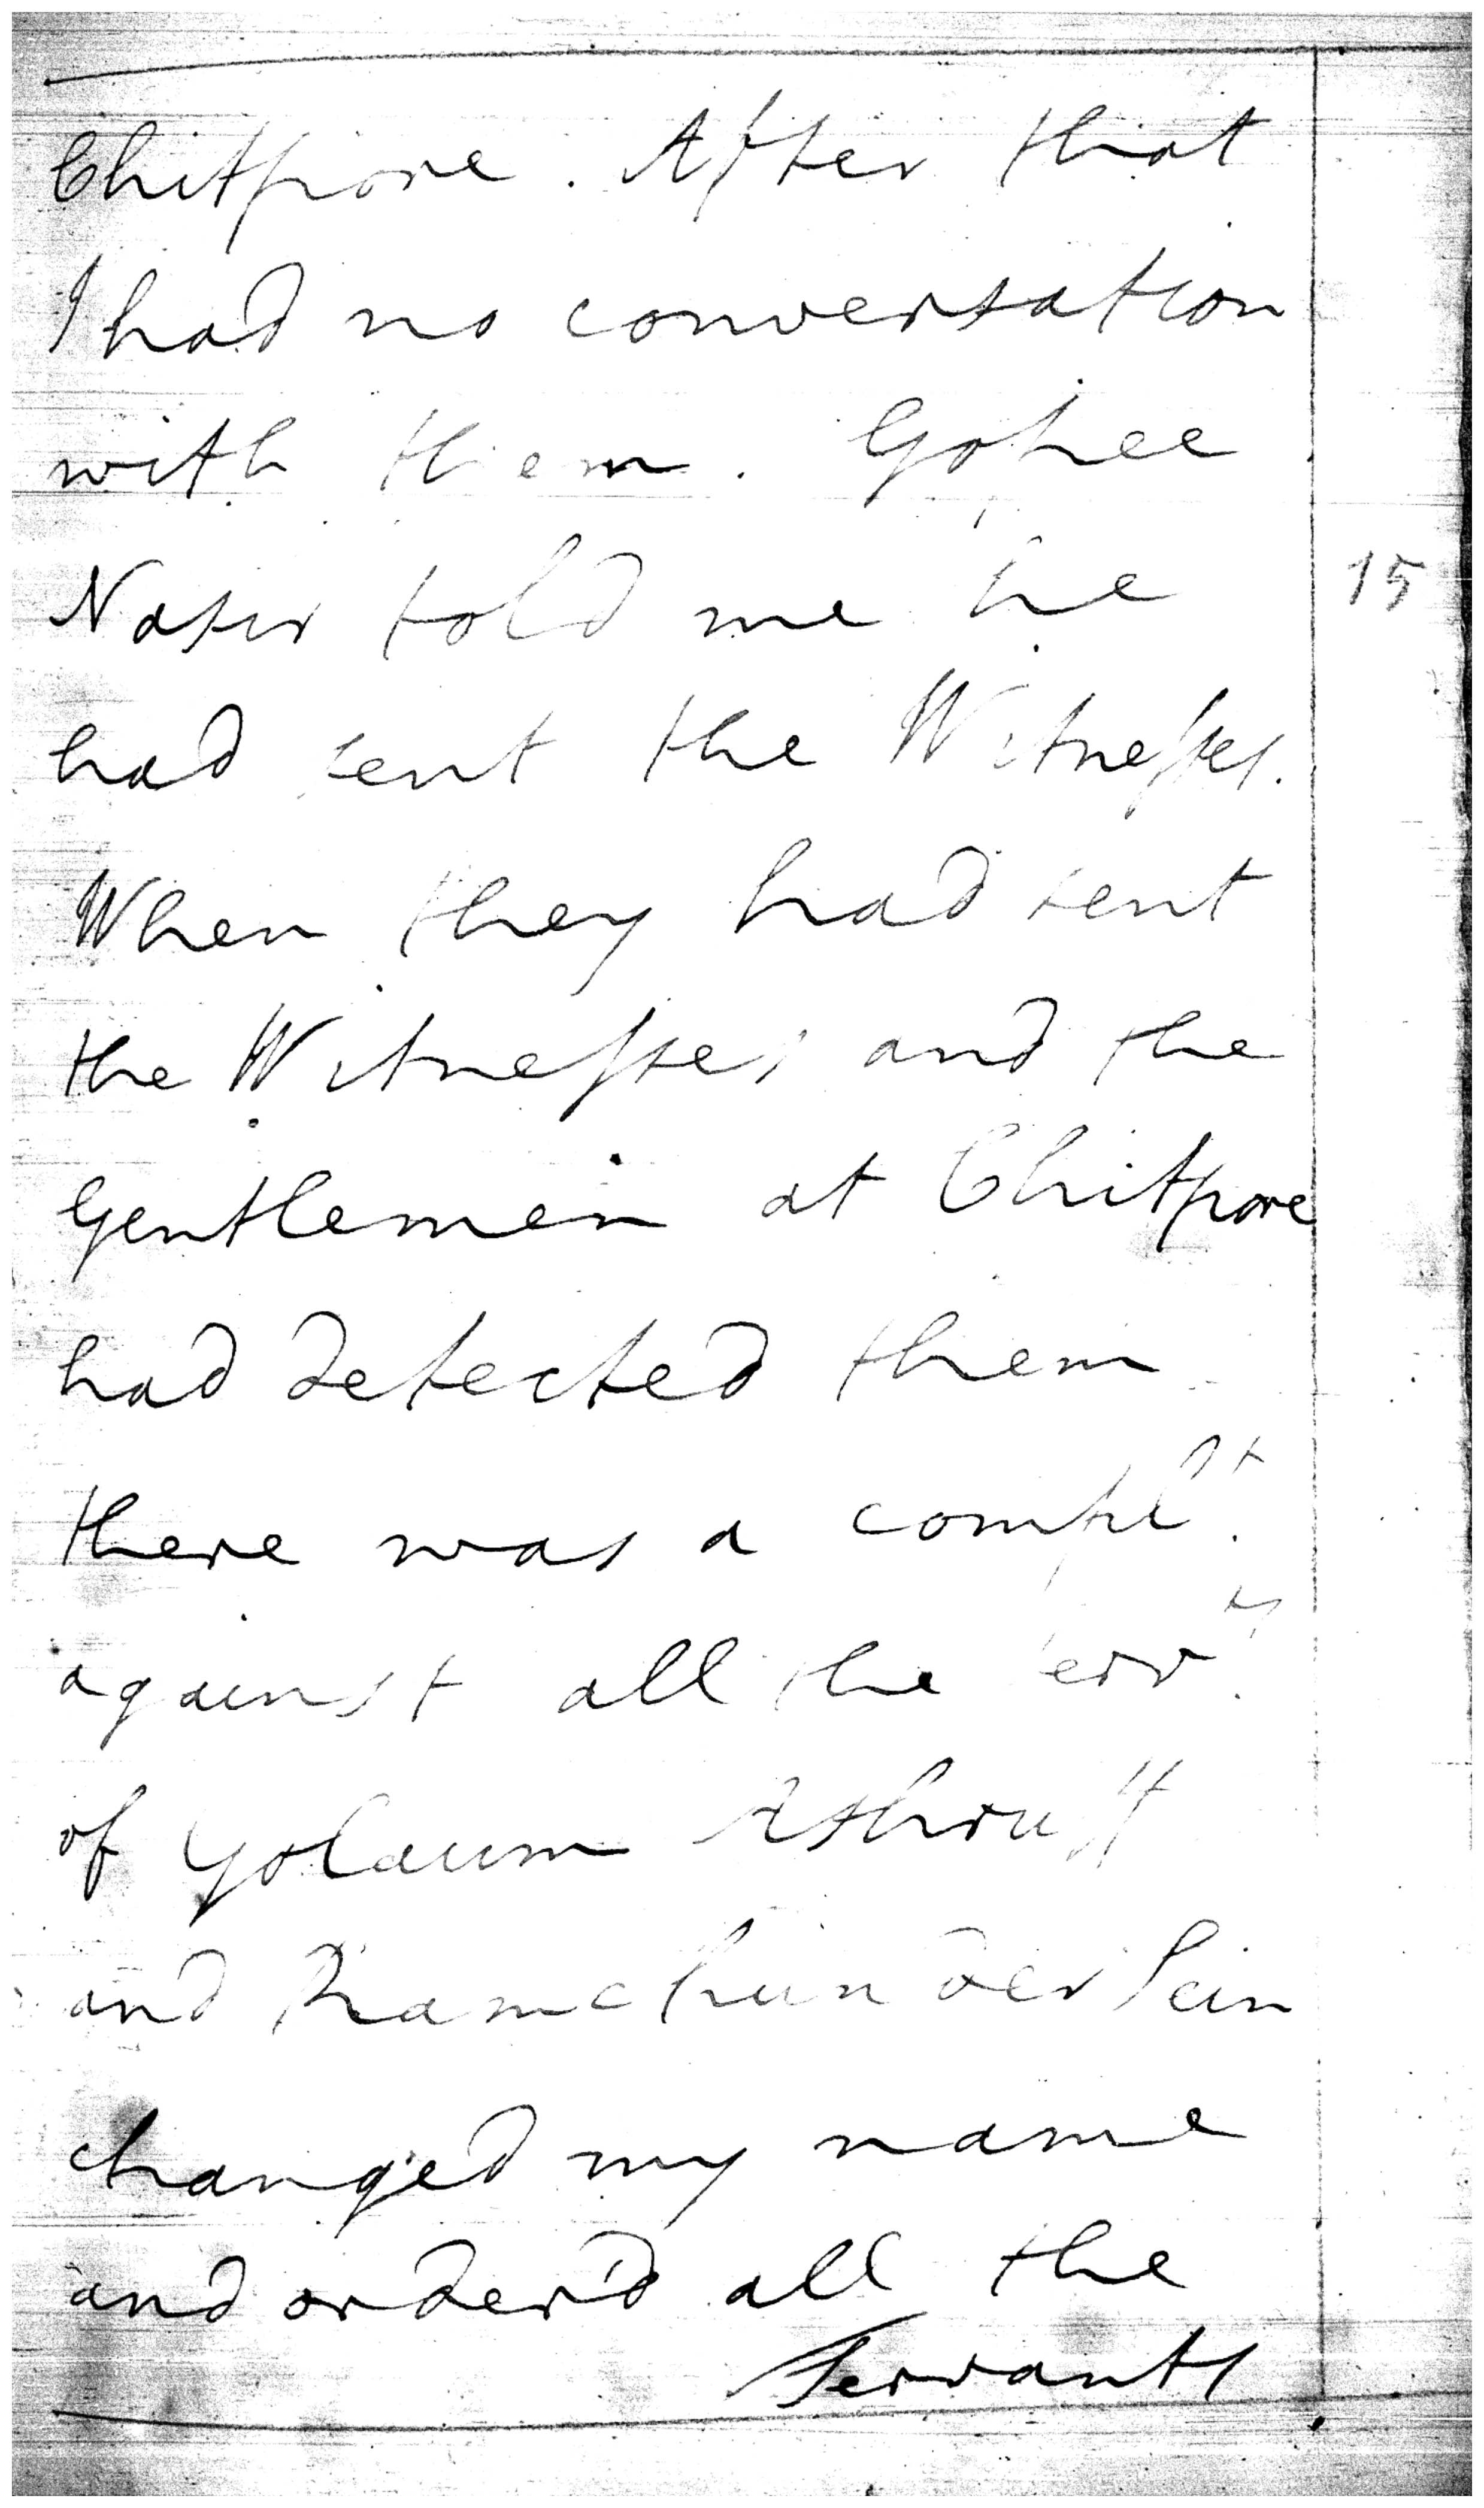 Chitpore. After that
I had no conversation
with them. Gopee
Nasir told me he
15
had sent the Witnesses.
When they had sent
the Witnesses and the
Gentlemen at Chitpore
had detected them
there was a compl.t
against all the serv.ts
of Golaum Ashruff
and Ramchunder Sein
changed my name
and order'd all the
Servants